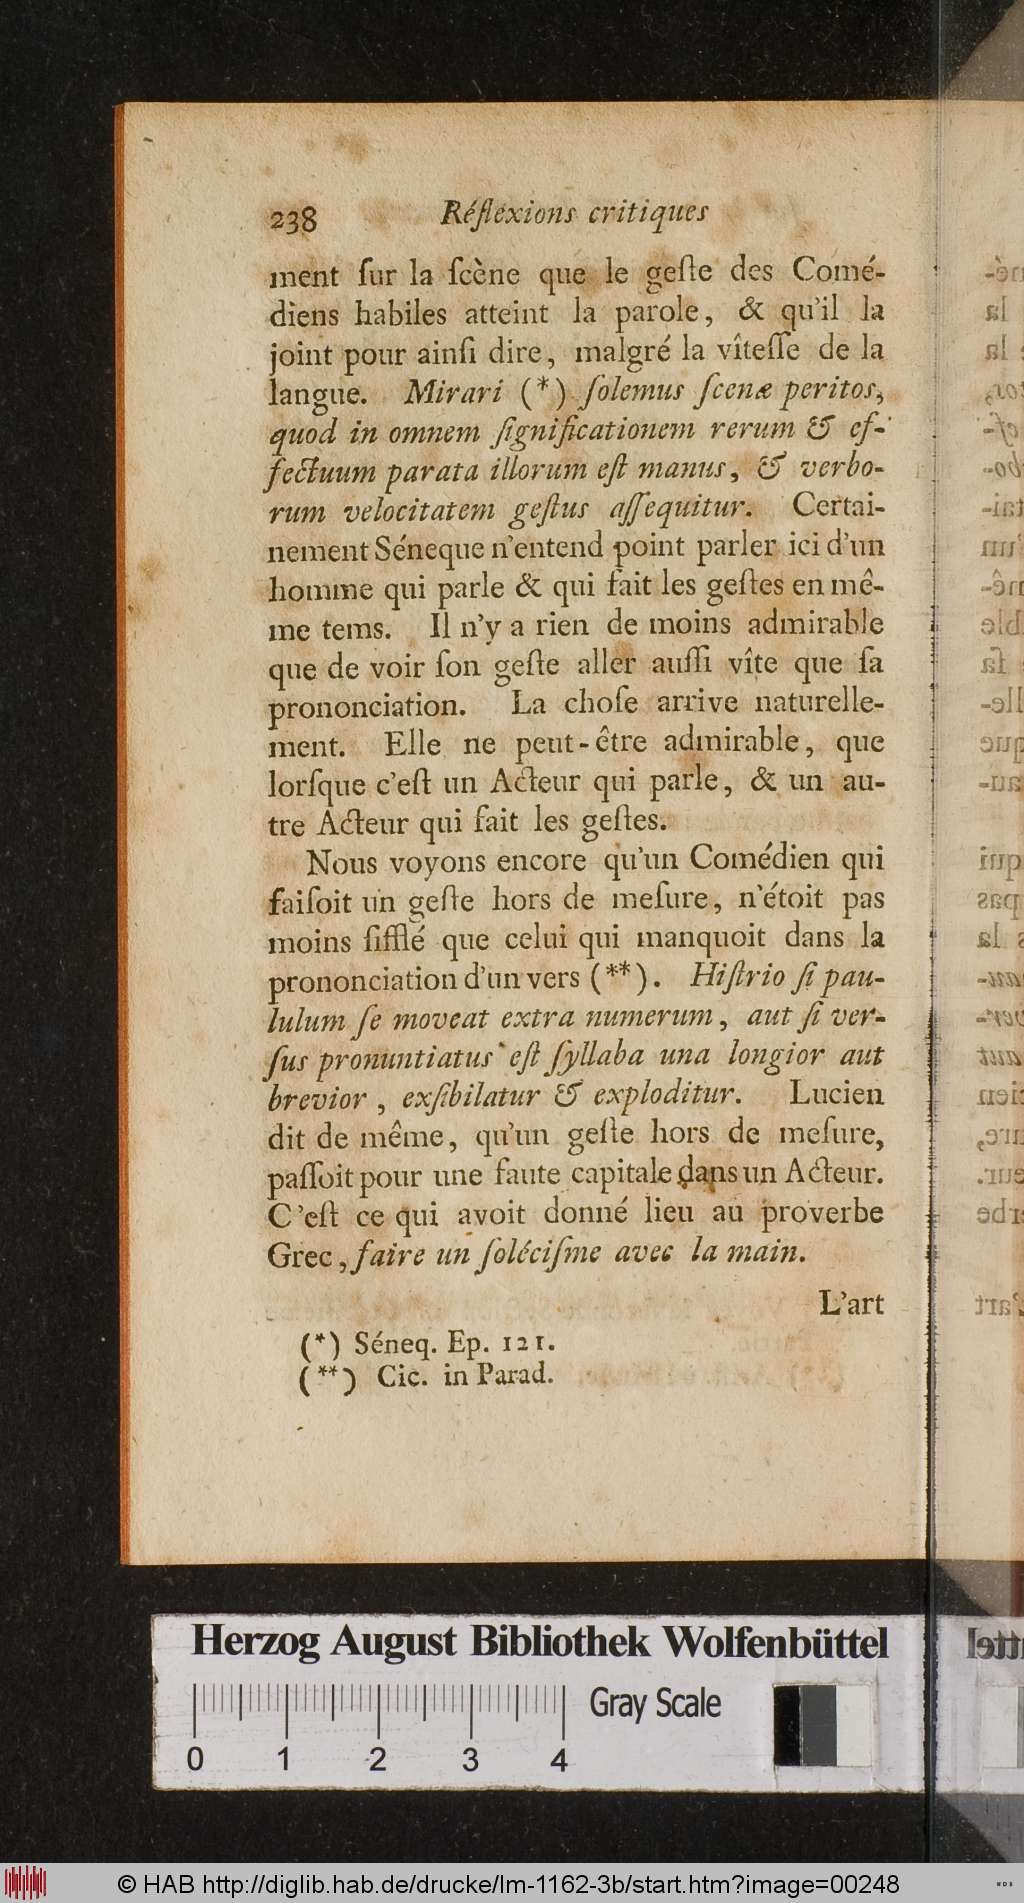 238 Réflexions critiques
ment ſur la ſcène que le geſte des Comé-
diens habiles atteint la parole, & qu'il la
joint pour ainſi dire, malgré la vîteſſe de la
langue. Mirari (*) ſolemus ſcenæ peritos,
quod in omnem ſignificationem rerum & ef-
fectuum parata illorum eſt manus, & verbo-
rum velocitatem geſtus aſſequitur. Certai-
nement Séneque n'entend point parler ici d'un
homme qui parle & qui fait les geſtes en mê-
me tems. Il n'y a rien de moins admirable
que de voir ſon geſte aller auſſi vîte que ſa
prononciation. La choſe arrive naturelle-
ment. Elle ne peut-être admirable, que
lorſque c'eſt un Acteur qui parle, & un au-
tre Acteur qui fait les geſtes.
Nous voyons encore qu'un Comédien qui
faiſoit un geſte hors de meſure, n'étoit pas
moins ſifflé que celui qui manquoit dans la
prononciation d'un vers (**). Hiſtrio ſi pau-
lulum ſe moveat extra numerum, aut ſi ver-
ſus pronuntiatus eſt ſyllaba una longior aut
brevior, exſibilatur & exploditur. Lucien
dit de même, qu'un geſte hors de meſure,
paſſoit pour une faute capitale dans un Acteur.
C'eſt ce qui avoit donné lieu au proverbe
Grec, faire un ſoléciſme avec la main.
L'art
(*) Séneq. Ep. 121.
(**) Cic. in Parad.
Herzog August Bibliothek Wolfenbüttel
Gray Scale
0 1 2 3 4
© HAB http://diglib.hab.de/drucke/lm-1162-3b/start.htm?image=00248